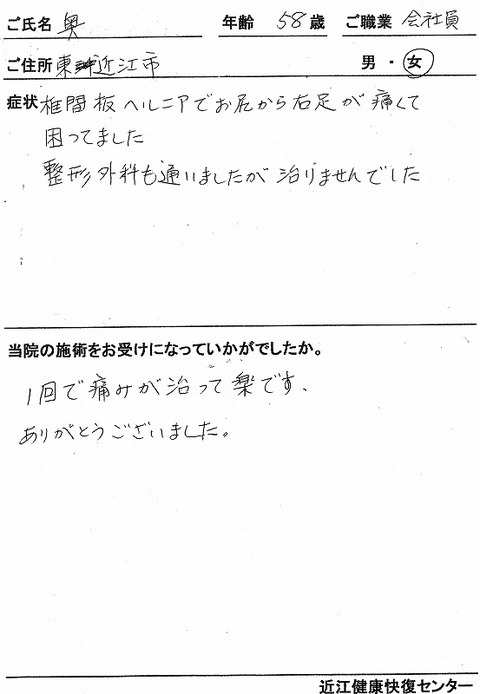 ご氏名 奥 年齢 58 歳 ご職業 会社員
ご住所 東近江市 男 ・ 女
症状 椎間板ヘルニアでお尻から右足が痛くて
困ってました
整形外科も通いましたが治りませんでした
当院の施術をお受けになっていかがでしたか。
1回で痛みが治って楽です、
ありがとうございました。
近江健康快復センター